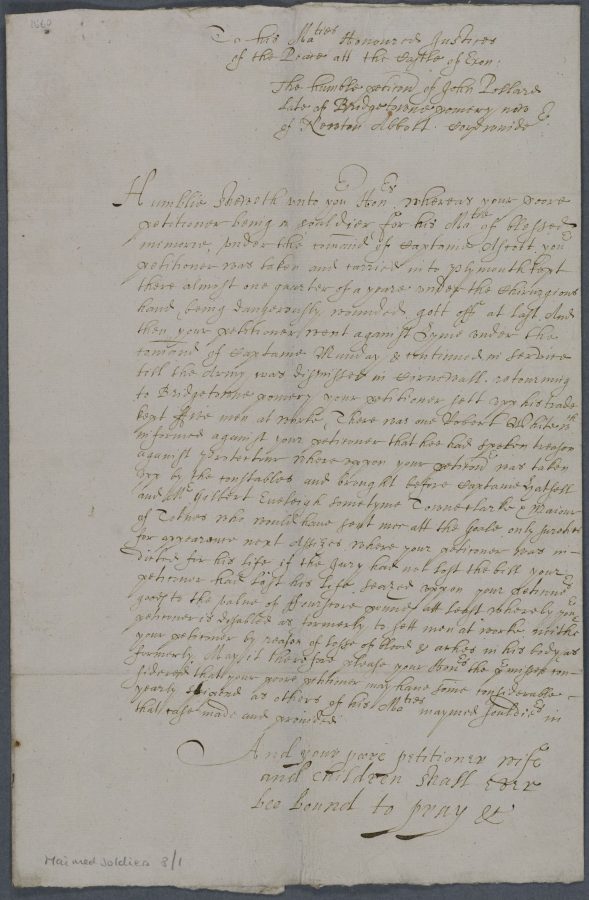 1660
To his Ma^ties Honoured Justices
of the Peace att the Castle of Exon:
The humble peticon of John Pollard
late of Bridgetowne pomery now
of Newton Abbott
Humblie Sheweth unto you^r Hon^rs, whereas your poore
petitioner being a souldier for his Ma^tie of blessed
memorie, under the comand of Captaine Ascott you^r
petitioner was taken and carried into plymouth kept
there almost one quarter of a yeare under the Chirurgions
hand, being dangerously wounded, gott off at last, And
then your petitioner went against Lyme under the
comand of Captaine Manday & continued in service
till the Army was dismissed in Cornewall. retourning
to Bridgetowne pomery your petitioner sett upp his trade
kept five men at worke, There was one Robert
informed against your peticoner that hee had spoken treason
against protectour whereuppon your peticon^r was taken
upp by the constables and brought before Captaine
and M^r Gilbert Eveleigh sometyme Towneclarke & Maiour
of Totnes who would have sent mee att the Goale only sureties
for appearance next Assizes where your peticoner was in=
dicted for his life if the Jury had not lost the bill your
peticoner had lost his life. seazed uppon your peticion^rs
goods to the value of ffourscore pounds att least whereby you^r
peticioner is disabled as formerly to sett men at worke, neither
your peticoner by reason of losse of blood & aches in his body as
formerly May it therefore please your Hono^rs the p^rmisses con=
sidered that your poore petitioner may have some considerable
yearly stipend as others of his Ma^ties maymed souldie^rs in
that case made and provided
And your poore petitioner wife
and children shall ever
bee bound to pray &c
Maimed Soldiers 3/1